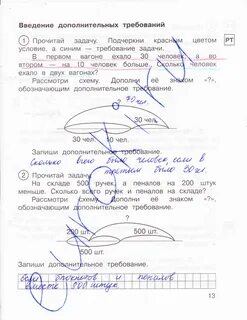 Введение дополнительных требований
1 Прочитай задачу. Подчеркни красным цветом
условие, а синим — требование задачи.
РТ
В первом вагоне ехало 30 человек, а во
втором — на 10 человек больше. Сколько человек
ехало в двух вагонах?
Рассмотри схему. Дополни её знаком «?»,
обозначив дополнительное требование.
30 чел.
30 чел. 10 чел.
Запиши дополнительное требование.
Сколько всего было человек, если в
третьем было 30 чел.
2 Прочитай задачу.
На складе 500 ручек, а пеналов на 200 штук
меньше. Сколько всего ручек и пеналов на складе?
Рассмотри схему. Дополни её знаком «?»,
обозначив дополнительное требование.
?
200 шт.
500 шт.
Запиши дополнительное требование.
если блокнотов и пеналов
вместе 900 штук
13